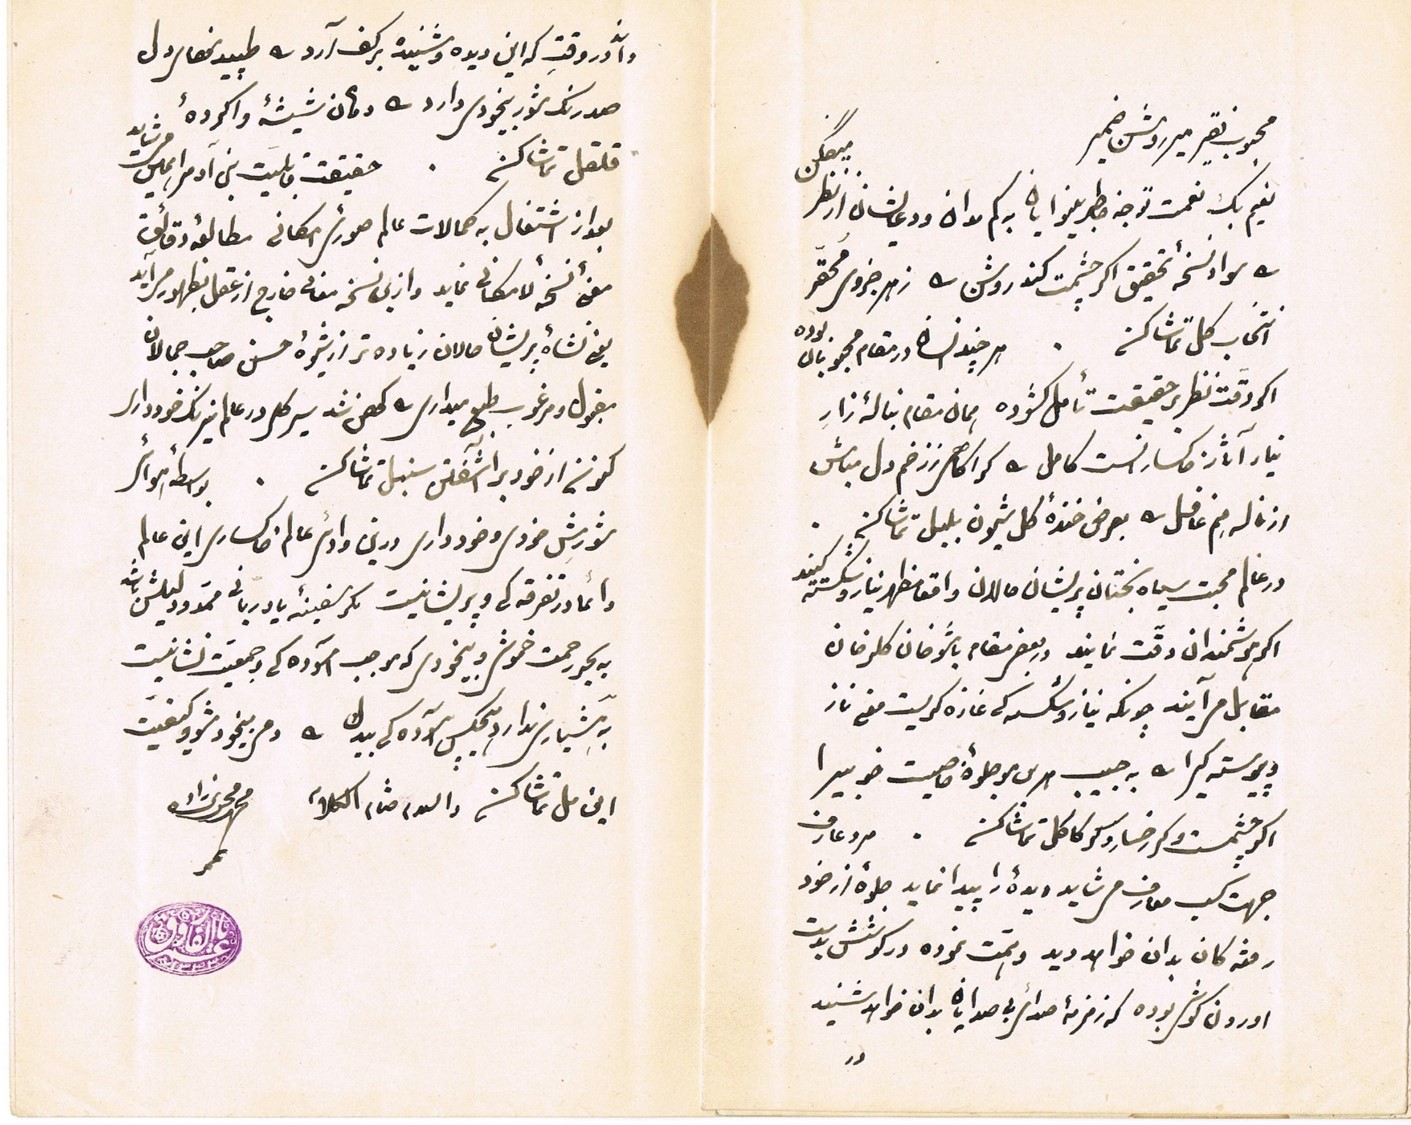 محبوب فقیر میر روشن ضمیر
نعیم بک نعمت توجه خاطر بینوایان به کم مدان و دعایشان از نظر میفکن
سواد نسخهٔ تحقیق اگر چشمت کند روشن ز هر جزوی محقّر
انتخاب کل تماشا کن . هر چند انسان در مقام محجوبان بوده
اگر دقّت نظر بر حقیقت تأمل کشوده همان مقام بنالهٔ زار
نیاز آثار خاکسارانست کامل که آگاهی ز زخم دل مباش
از ناله‌ام غافل بعرض خندهٔ گل شیون بلبل تماشا کن .
در عالم محبت سیاه بختان پریشان حالان واقعا مظهر نیاز و شکسته کیند
اگر هوشمندان دقّت نمایند در بعض مقام با شوخان گلرخان
مقابل می‌آیند چونکه نیاز و شکسته کی غازه گریست معنی ناز
و پیوسته گیرا به جیب هر سر مو جلوهٔ خاصیت خوبی را
اگر چشمست و گر رخسار و گر کاکل تماشا کن . مرد عارف
جهت کسب معارف می‌شاید دیدهٔ را پیدا نماید جلوهٔ از خود
رفته کان بدان خواهد دید و همّت نموده در کوشش بدست
اوردن گوشی بوده که زمزمهٔ صدای بی صدایان بدان خواهد شنید
در
و آندر وقتی که این دیده و شنیده بر کف آرد طپیدنهای دل
صد رنگ شور بیخودی دارد دکان شیشهٔ واکردهٔ
قلقل تماشا کن . حقیقت قابلیّت بنی آدم را همین می‌شاید
بعد از اشتغال به کمالات عالم صوری امکانی مطالعهٔ دقائق
معنی نسخهٔ لامکانی نماید و ازین نسخه معانی خارج از عقل بظهور می‌آید
یعنی نشاهٔ پریشان حالان زیاده تر از شیوهٔ حسن صاحب جمالان
مقبول و مرغوب طبع میداری که شد سیر گلی در عالم نیرنگ خودداری
کنون از خود برا آشفتن سنبل تماشا کن . بواسطهٔ هوای
شورش خودی و خودداری درین وادی عالم خاکساری این عالم
دائما در تفرقه کی و پریشانیست مگر سفینهٔ یاد ربانی ممدود لیلش باشد
به بحر رحمت خموشی و بیخودی که موجب آسوده کی و جمعیت نشانیست
به هشیاری ندارد هیچکس آسوده کی بیدل دمی بیخود شو و کیفیّت
این مل تماشا کن والسلام ختام الکلام